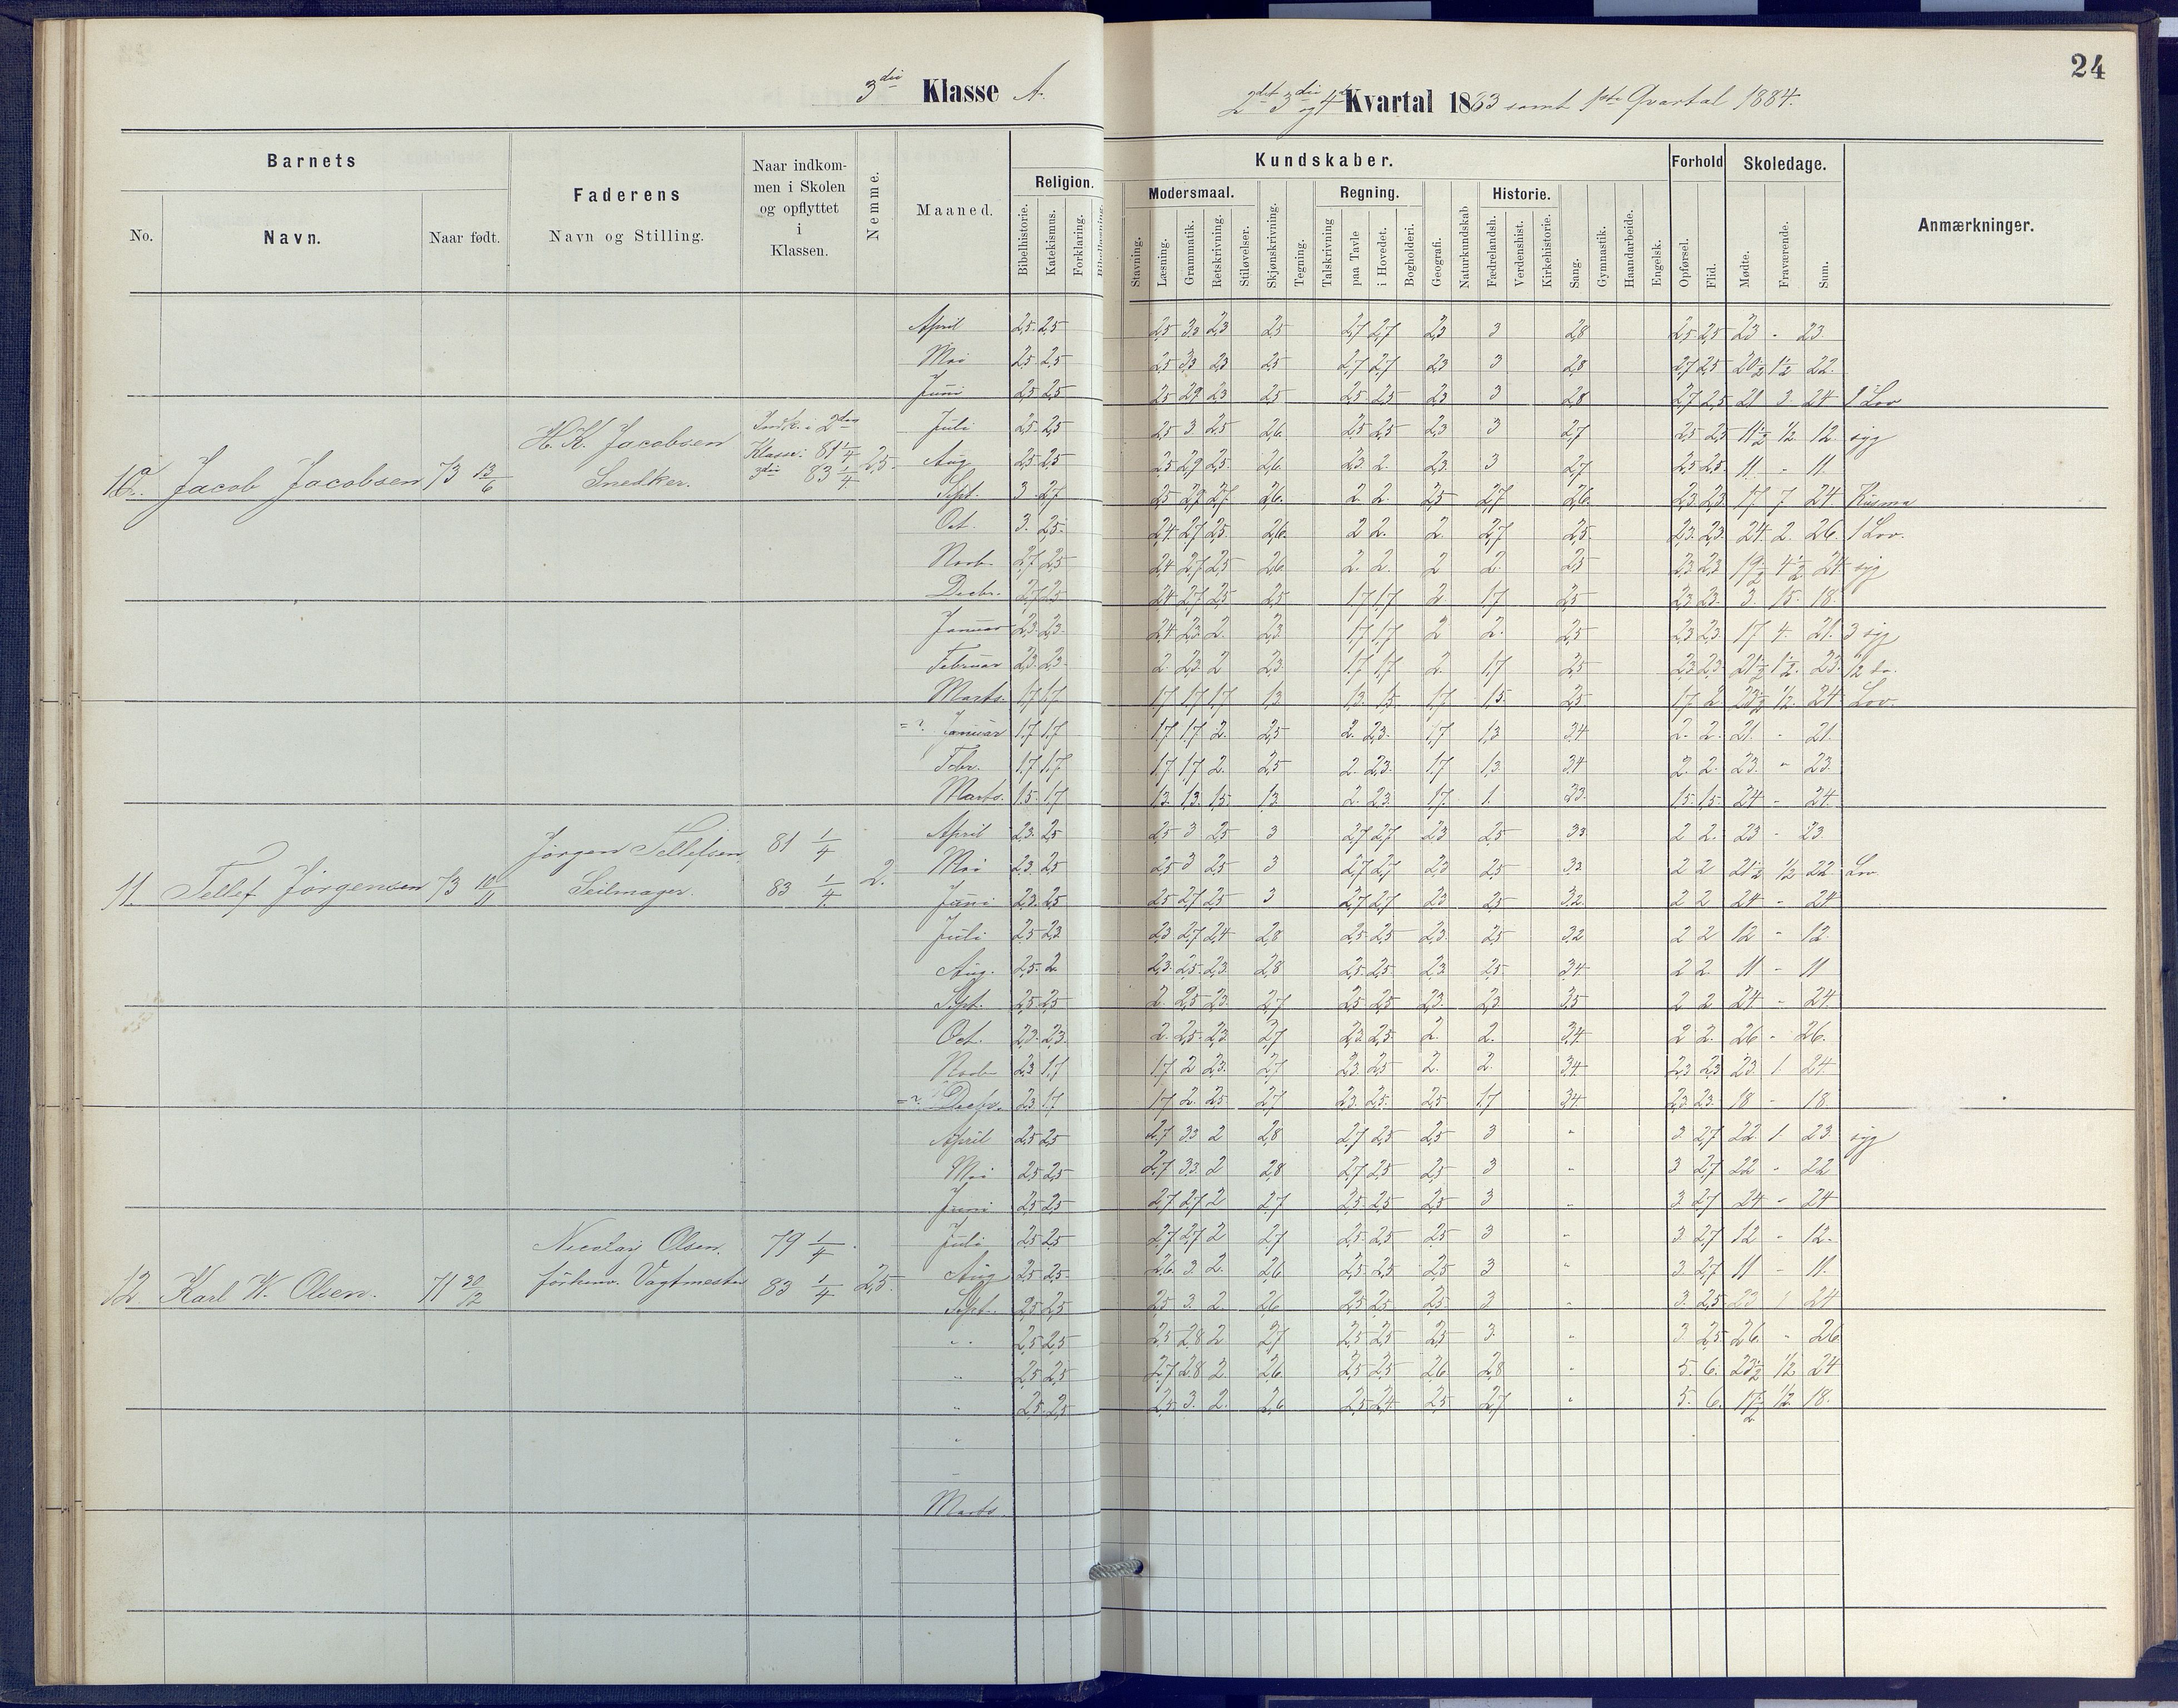 24
3die Klasse A.
2det 3die og 4de Kvartal 1883 samt 1ste Qvartal 1884.
Barnets
No.
Navn.
Naar født.
Faderens
Navn og Stilling.
Naar indkom-
men i Skolen
og opflyttet
i
Klassen.
Nemme.
Maaned.
Kundskaber.
Religion.
Bibelhistorie.
Katekismus.
Forklaring.
Modersmaal.
Stavning.
Læsning.
Grammatik.
Retskrivning.
Stiløvelser.
Skjønskrivning.
Tegning.
Regning.
Talskrivning
paa Tavle
i Hovedet.
Bogholderi.
Geografi.
Naturkundskab
Historie.
Fædrelandsh.
Verdenshist.
Kirkehistorie.
Sang.
Gymnastik.
Haandarbeide.
Engelsk.
Forhold
Opførsel.
Flid.
Skoledage.
Mødte.
Fraværende.
Sum.
Anmærkninger.
April 2,5 2,5 2,5 3,3 2,3 2,5 2,7 2,7 2,3 3 2,8 2,5 2,5 23 - 23.
Mai 2,5 2,5 2,5 3,3 2,3 2,5 2,7 2,7 2,3 3 2,8 2,7 2,5 20½ 1½ 22.
Juni 2,5 2,5 2,5 2,9 2,3 2,5 2,5 2,5 2,3 3 2,8 2,7 2,5 21 3 24 1 Lov
Jacob Jacobsen 73 13/6
H. K. Jacobsen
Snedker.
Indk. i 2den
Klasse: 81 1/4
3die 83 1/4
2,5.
Juli 2,5 2,5 2,5 3 2,5 2,6 2,5 2,5 2,3 3 2,7 2,5 2,5 11½ ½ 12. syg
Aug 2,5 2,5 2,5 2,9 2,5 2,6 2,3 2. 2,3. 3 2,7 2,5 2,5 11 - 11.
Sept. 3 2,7 2,5 2,9 2,7 2,6 2 2. 2,5 2,7 2,6 2,3 2,3 17 7 24
Oct. 3. 2,5 2,4 2,7 2,5 2,6 2 2. 2. 2,7 2,5 2,3 2,3 24 2. 26. 1 Lov.
Novb. 2,7 2,5 2,4 2,7 2,5 2,6 2. 2. 2 2. 2,5 2,3 2,3 19½ 4½ 24 syg
Decbr. 2,7 2,5 2,4 2,7 2,5 2,5 1,7 1,7 2. 1,7 2,5 2,3 2,3 3. 15. 18
Januar 2,3 2,3 2,4 2,3 2. 2,3 1,7 1,7 2 2. 2,5 2,3 2,3 17 4. 21. 3 syg
Februar 2,3 2,3 2. 2,3 2 2,3 1,7 1,7 2. 1,7 2,5 2,3 2,3 21½ 1½ 23. ½ do.
Marts. 1,7 1,7 1,7 1,7 1,7 1,3 1,3 1,5 1,7 1,5 2,5 1,7 2 23½ ½ 24 Lov.
Januar 1,7 1,7 1,7 1,7 2. 2,5 2. 2,3. 1,7 1,3 3,4 2. 2. 21. - 21.
Febr. 1,7 1,7 1,7 1,7 2. 2,5 2. 2,3. 1,7 1,3. 3,4 2. 2. 23. - 23.
Marts. 1,5 1,7 1,3 1,3 1,5 1,3 2. 2,3. 1,7. 1. 2,3. 1,5 1,5 24 - 24.
11. Tellef Jörgensen 73 10/11
Jörgen Tellefsen
Seilmager.
81 1/4
83 1/4
2.
April 2,3 2,5 2,5 3 2,5 3 2,7 2,7 2,3 2,5 3,3 2 2. 23 - 23.
Mai 2,3 2,5 2,5 3 2,5 3 2,7 2,7 2,3 2,5 3,3 2 2 21½ ½ 22 Lov.
Juni 2,3 2,5 2,5 2,7 2,5 3 2,7 2,7 2,3 2,5 3,2 2 2 24 - 24
Juli 2,5 2,3 2,3 2,7 2,4 2,8 2,5 2,5 2,3 2,5 3,2 2 2 12 - 12.
Aug. 2,5 2 2,3 2,5 2,3 2,8 2,5 2,5 2,3 2,5 3,4 2 2 11 - 11
Sept. 2,5 2,5 2. 2,5 2,3 2,7 2,5 2,5 2,3. 2,3. 3,5 2 2 24 - 24.
Oct. 2,3 2,3 2. 2,5 2,3 2,7 2,3 2,5 2. 2. 3,4 2 2 26 - 26.
Novb 2,3 1,7 1,7 2 2,3 2,7 2,3 2,5 2. 2. 3,4 2,3 2,3 23. 1 24
Decbr. 2,3 1,7 1,7 2. 2,5 2,7 2,3 2,5 2,5 1,7 3,4 2,3 2,3 18 - 18.
April 2,5 2,5 2,7 3,3 2 2,8 2,7 2,5 2,5 3 - 3. 2,7 22 1 23. syg
Mai 2,5 2,5 2,7 3,3 2 2,8 2,7 2,5 2,5 3 - 3 2,7 22 - 22
Juni 2,5 2,5 2,7 2,7 2 2,7 2,5 2,5 2,5 3 - 3 2,7 24 - 24
12 Karl W. Olsen. 71 30/12
Nicolay Olsen.
forhenv. Vagtmester
79 1/4
83 1/4
2,5.
Juli 2,5 2,5 2,7 2,7 2 2,7 2,5 2,5 2,5 3 - 3 2,7 12 - 12.
Aug 2,5 2,5 2,6 3. 2. 2,6 2,5 2,5 2,5 3 - 3. 2,7 11 - 11.
Sept. 2,5 2,5 2,5 3. 2. 2,6 2,5 2,5 2,5 3 - 3. 2,5 23 1 24
" 2,5 2,5 2,5 2,8 2 2,7 2,5 2,5 2,5 3. - 3 2,5 26 - 26
" 2,5 2,5 2,7 2,8 2 2,6 2,5 2,5 2,6 2,8 - 5. 6. 23½ ½ 24
" 2,5 2,5 2,5 3. 2. 2,6 2,5 2,4 2,5 2,7 - 5. 6. 17½ ½ 18.
Marts